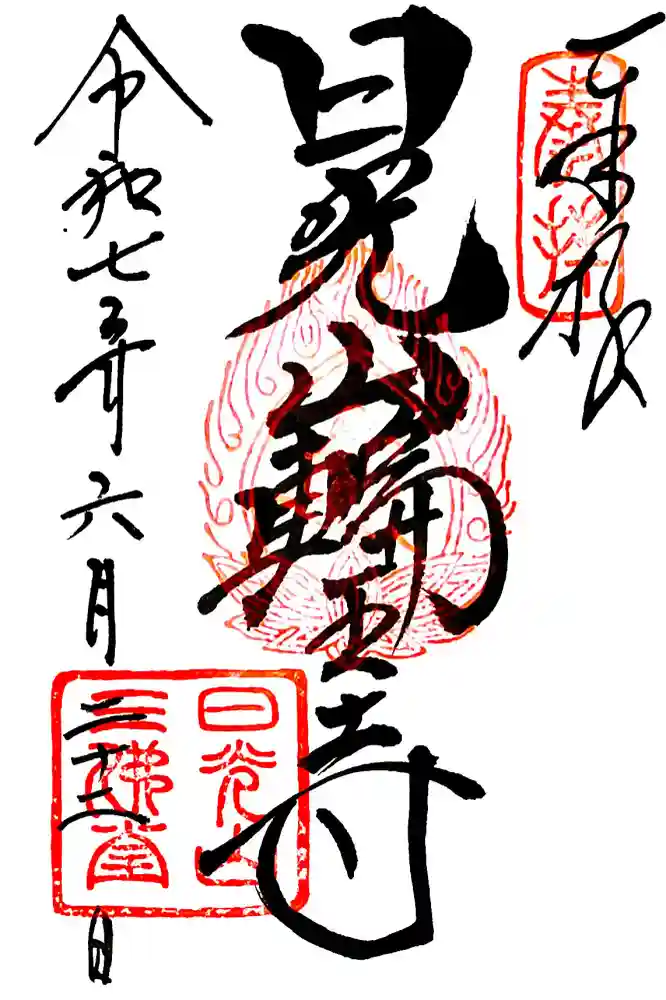 奉拝
日光山輪王寺
令和七年六月二十二日
日光山
三佛堂